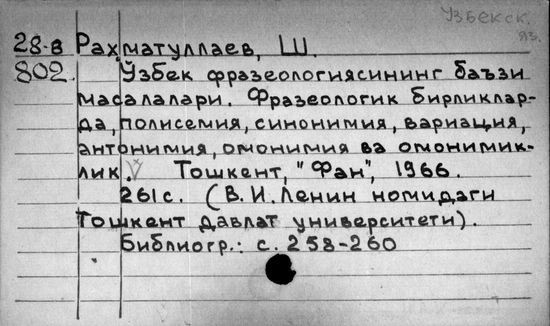 Узбекск.
яз.
28-в Раҳматуллаев, Ш.
802. Ўзбек фразеологиясининг баъзи
масалалари. Фразеологик бирликлар-
да, полисемия, синонимия, вариация,
антонимия, омонимия ва омонимик-
лик. Тошкент, "Фан", 1966.
261 с. (В. И. Ленин номидаги
Тошкент Давлат университети).
Библиогр.: с. 258-260